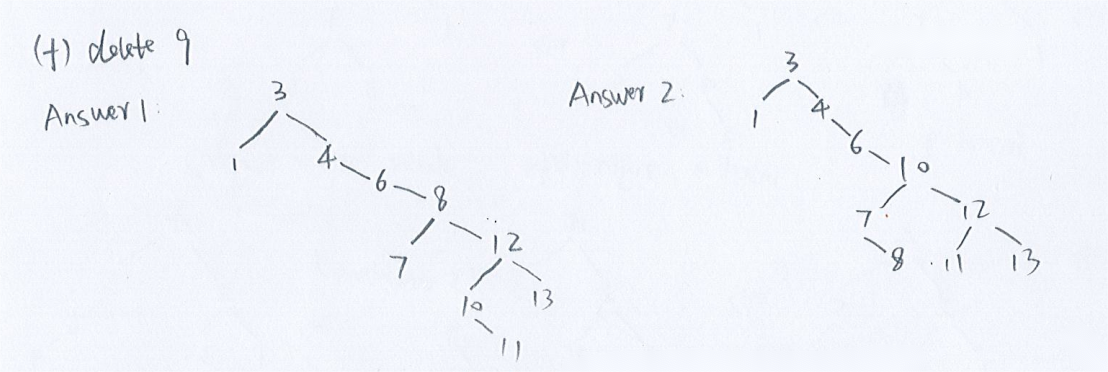 (f) delete 9
Answer 1:
3
1
4
6
8
7
12
10
13
11
Answer 2:
3
1
4
6
10
7
12
8
11
13